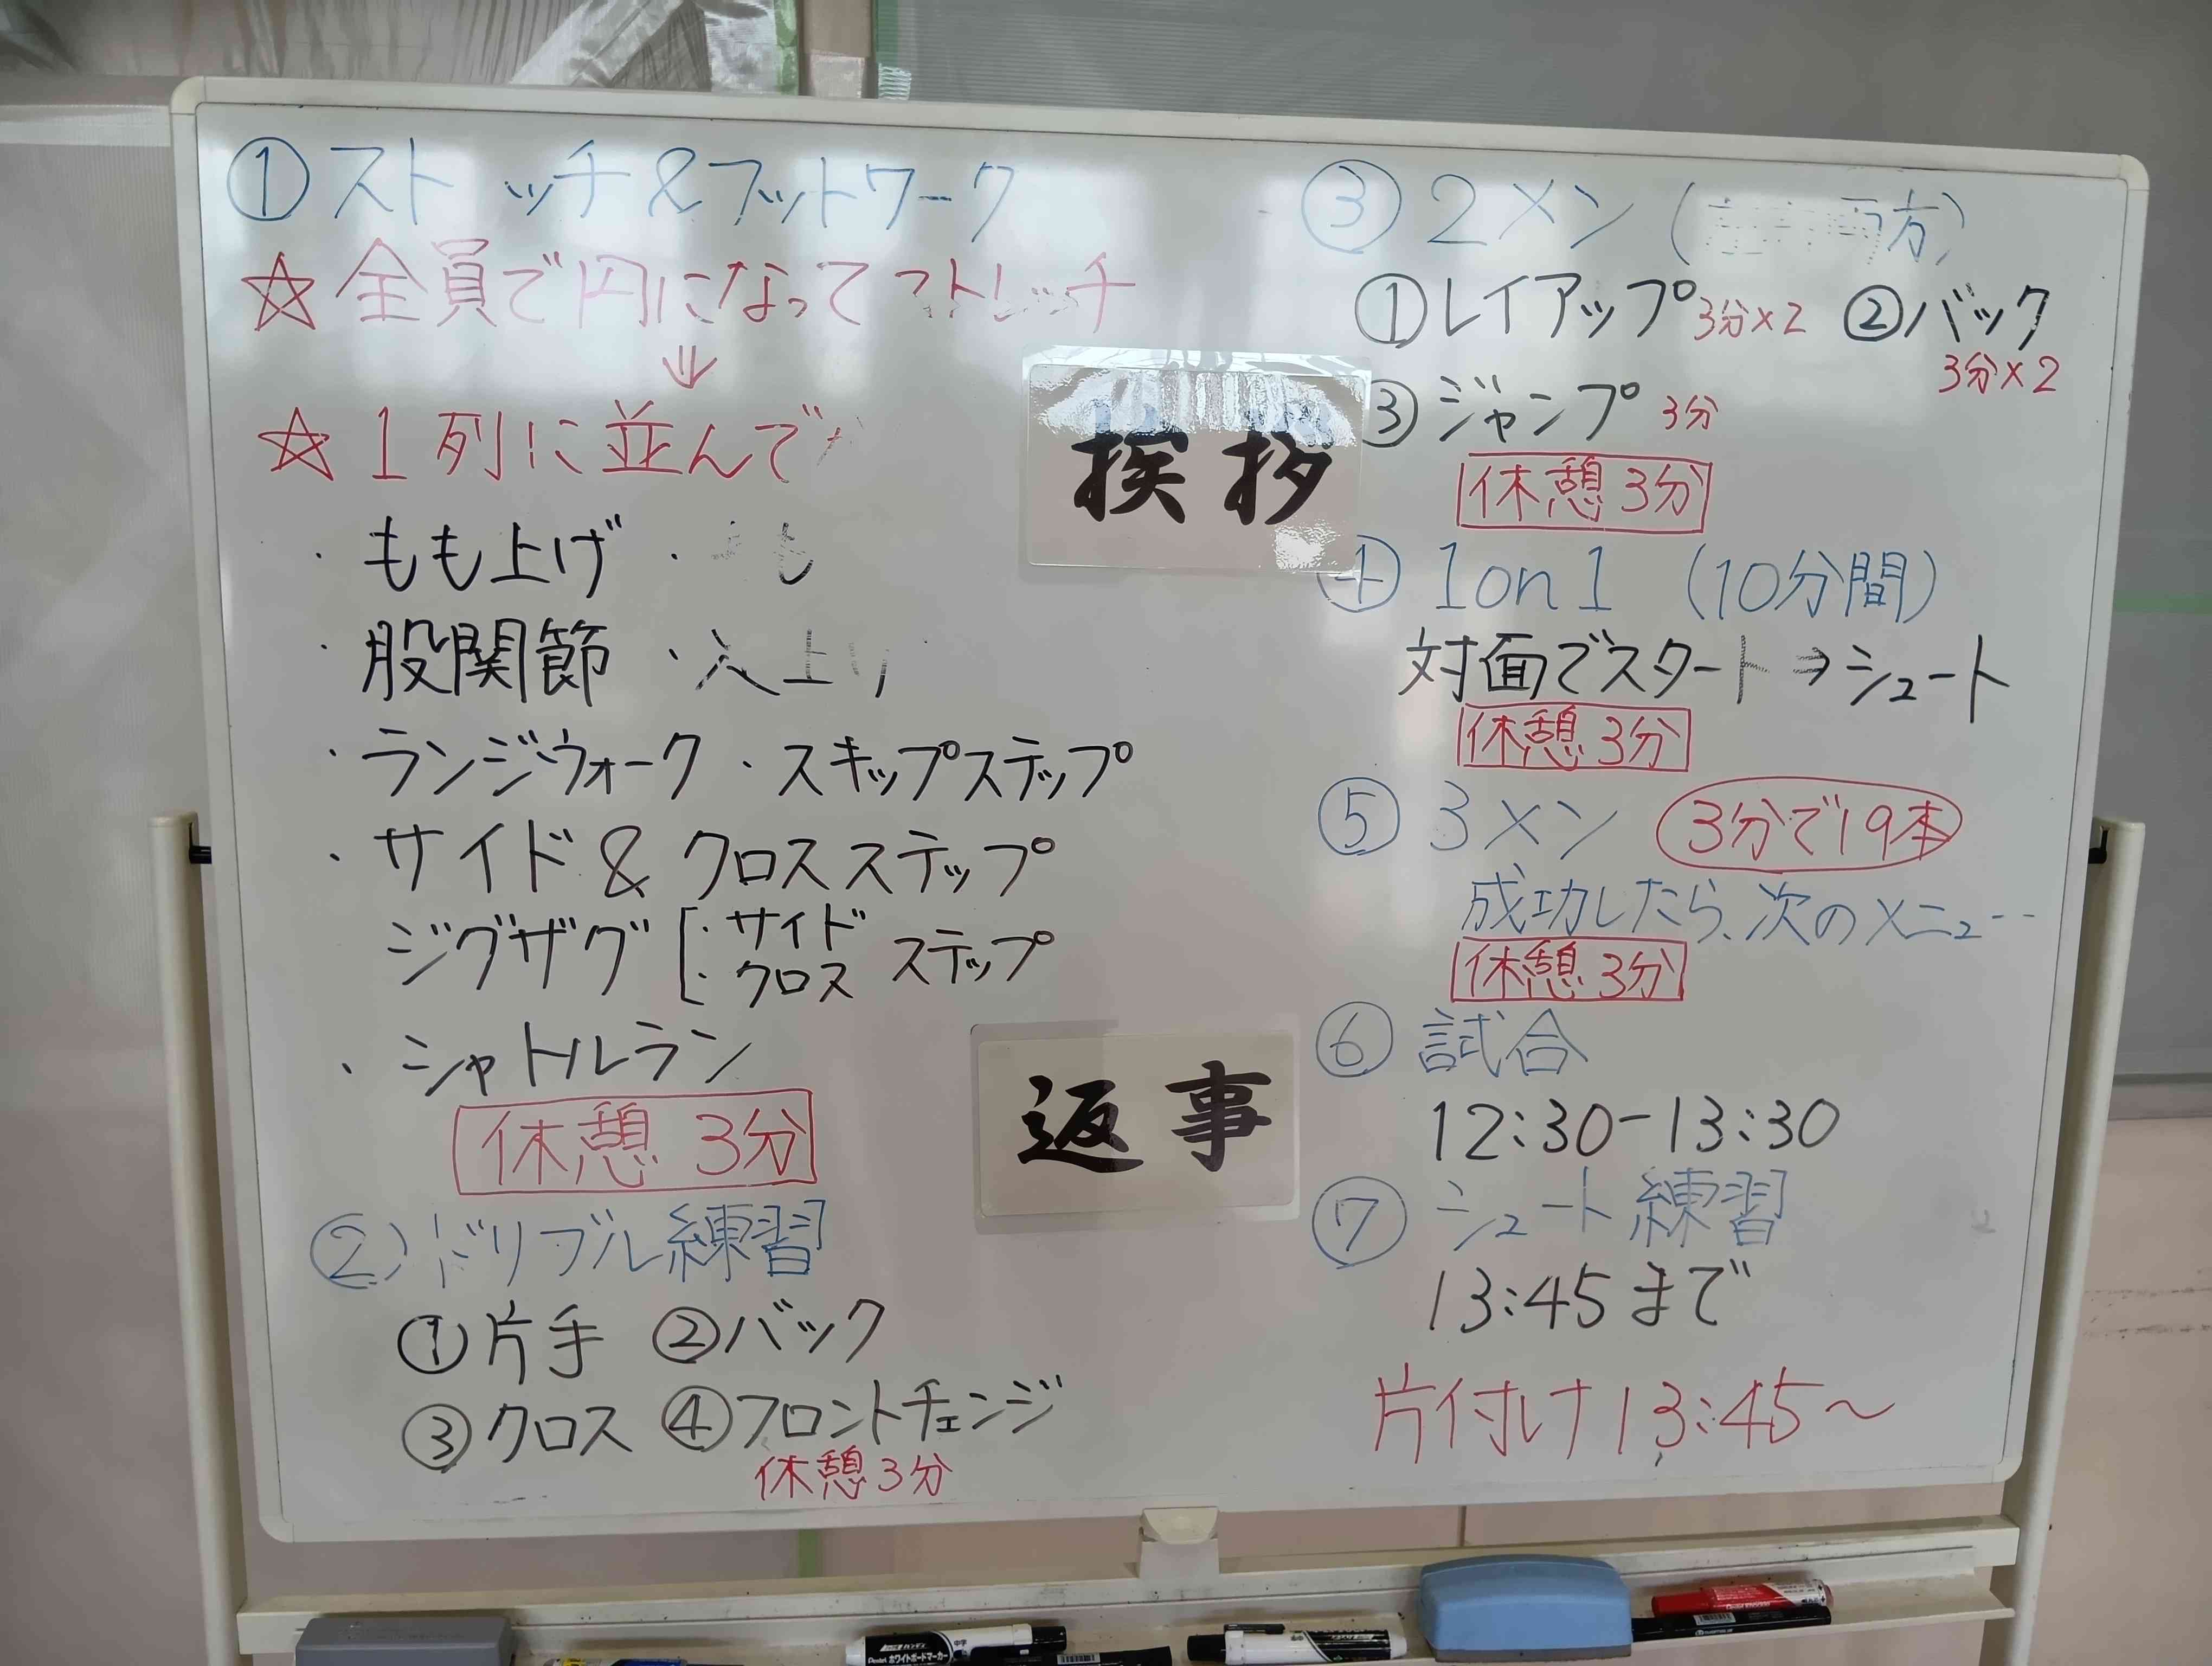 ①スト ッチ&フットワーク
☆全員で円になってストレッチ
↓
☆1列に並んで
・もも上げ ・
・股関節 ・
・ランジウォーク ・スキップステップ
・サイド&クロスステップ
ジグザグ[・サイド ・クロス ステップ
・シャトルラン
休憩 3分
②ドリブル練習
①片手 ②バック
③クロス ④フロントチェンジ
休憩3分
挨拶
返事
③2メン( 両方)
①レイアップ3分×2 ②バック
3分×2
③ジャンプ 3分
休憩3分
④1on1 (10分間)
対面でスタート→シュート
休憩3分
⑤3メン 3分で19本
成功したら、次のメニュー
休憩3分
⑥試合
12:30-13:30
⑦シュート練習
13:45まで
片付け13:45〜
ホワイトボードマーカー